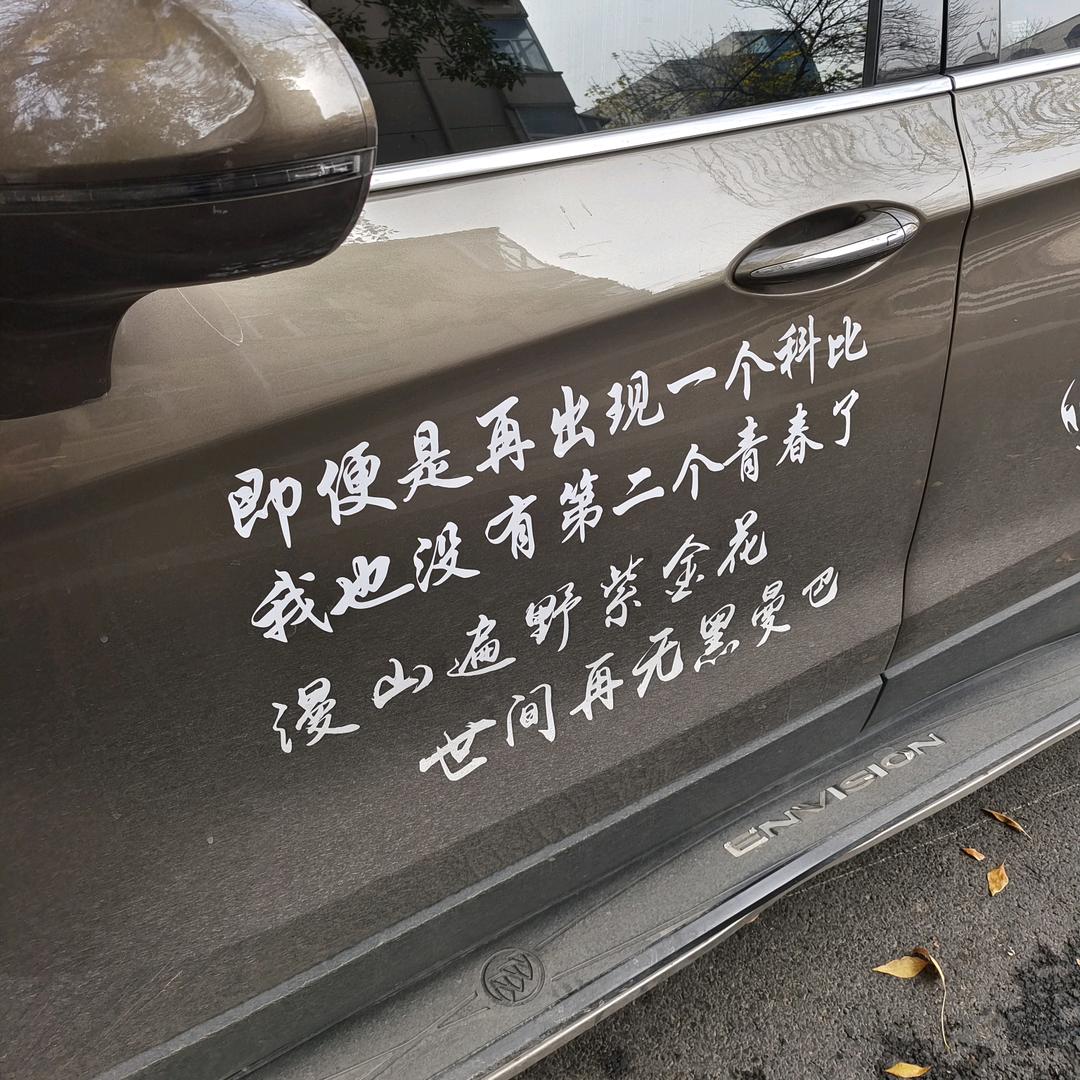 即便是再出现一个科比
我也没有第二个青春了
漫山遍野紫金花
世间再无黑曼巴
ENVISION